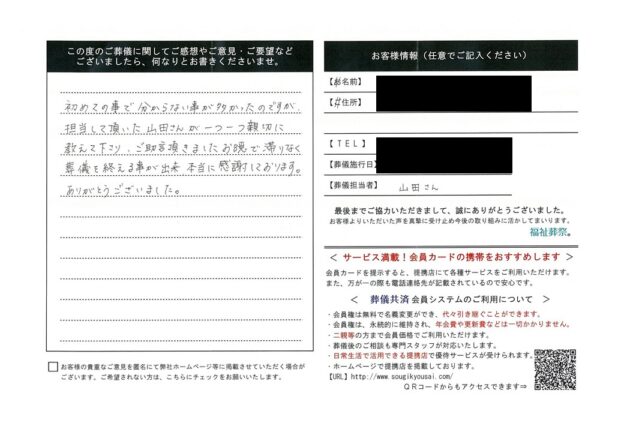 この度のご葬儀に関してご感想やご意見・ご要望など
ございましたら、何なりとお書きくださいませ。
初めての事で分からない事が多かったのですが、
担当して頂いた山田さんが一つ一つ親切に
教えて下さり、ご助言頂きましたお陰で滞りなく
葬儀を終える事が出来本当に感謝しております。
ありがとうございました。
お客様の貴重なご意見を匿名にて弊社ホームページ等に掲載させていただく場合が
ございます。ご希望されない方は、こちらにチェックをお願いいたします。
お客様情報（任意でご記入ください）
【お名前】
【ご住所】
【ＴＥＬ】
【葬儀施行日】
【葬儀担当者】 山田さん
最後までご協力いただきまして、誠にありがとうございました。
お客様よりいただいた声を真摯に受け止め今後の取り組みに活かしてまいります。
福祉葬祭。
＜ サービス満載！会員カードの携帯をおすすめします ＞
会員カードを提示すると、提携店にて各種サービスをご利用いただけます。
また、万が一の際も電話連絡先が記載されているので安心です。
＜ 葬儀共済 会員システムのご利用について ＞
・会員権は無料で名義変更ができ、代々引き継ぐことができます。
・会員権は、永続的に維持され、年会費や更新費などは一切かかりません。
・二親等の方まで会員価格でご利用いただけます。
・葬儀後のご相談も専門スタッフが対応いたします。
・日常生活で活用できる提携店で優待サービスが受けられます。
・ホームページで提携店を掲載しております。
【URL】http://www.sougikyousai.com/
ＱＲコードからもアクセスできます⇒